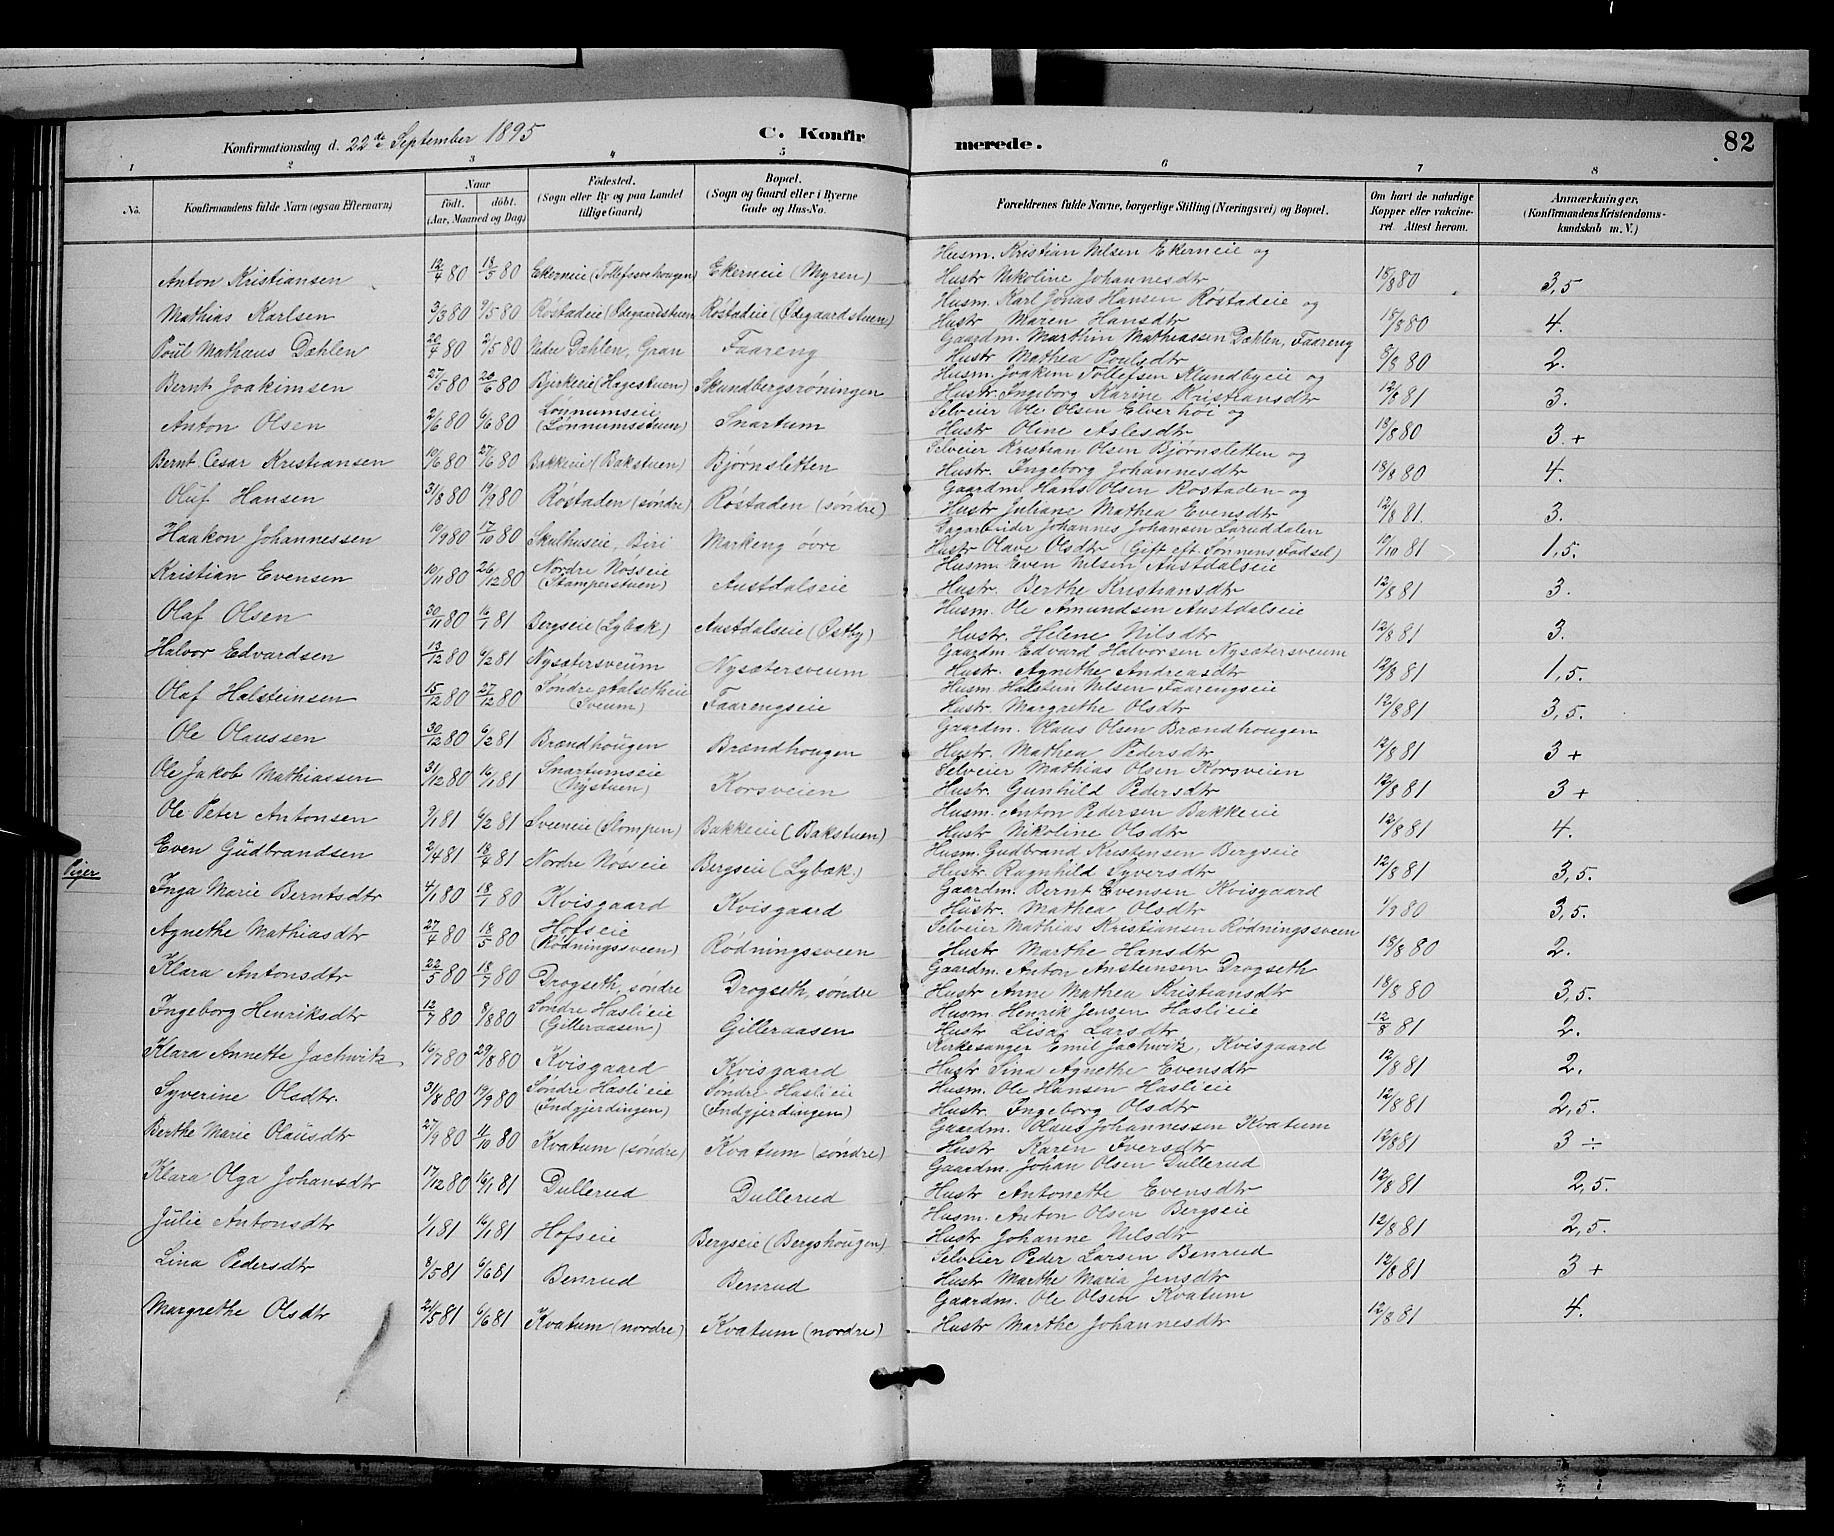 Konfirmationsdag d. 22de September 1895
C. Konfirmerede.
82
1 2 3 4 5 6 7 8
No.
Konfirmandens fulde Navn (ogsaa Efternavn)
Naar født. døbt. (Aar, Maaned og Dag)
Fødested. (Sogn eller By og paa Landet tillige Gaard)
Bopæl. (Sogn og Gaard eller i Byerne Gade og Hus-No.
Forældrenes fulde Navne, borgerlige Stilling (Næringsvei) og Bopæl.
Om havt de naturlige Kopper eller vakcineret. Attest herom.
Anmærkninger, (Konfirmandens Kristendomskundskab m. V.)
Anton Kristiansen 12/4 80 18/5 80 Ekerneie (Tollefsvehougen) Ekerneie (Myren) Husm. Kristian Nilsen Ekerneie og Hustr Nikoline Johannesdtr 18/8 80 3,5
Mathias Karlsen 3/3 80 9/5 80 Røstadeie (Ødegaardstuen Røstadeie (Ødegaardstuen) Husm. Karl Jonas Hansen Røstadeie og Hustr Maren Hansdtr 18/8 80 4.
Poul Mathæus Dæhlen 20/4 80 2/5 80 Nedre Dæhlen, Gran Faareng Gaardm. Marthin Mathiassen Dæhlen, Faareng Hustr Mathea Poulsdtr 8/8 80 2.
Bernt Joakimsen 27/5 80 20/6 80 Bjerkeie (Hagestuen) Skundbergsrøningen Husm. Joakim Tollefsen Klundbyeie og Hustr. Ingeborg Karine Kristiansdtr 12/8 81 3.
Anton Olsen 2/6 80 6/6 80 Lønnumseie (Lønnumsstuen) Snartum Selveier Ole Olsen Elverhøi og Hustr Oline Aslesdtr 18/8 80 3.+
Bernt Cesar Kristiansen 10/6 80 27/6 80 Bakkeie (Bakstuen) Bjørnsletten Selveier Kristian Olsen Bjørnsletten og Hustr. Ingeborg Johannesdtr 18/8 80 4.
Oluf Hansen 31/8 80 19/9 80 Røstaden (søndre) Røstaden (søndre) Gaardm. Hans Olsen Røstaden og Hustr Juliane Mathea Evensdtr 12/8 81. 3.
Haakon Johannessen 19/9 80 17/10 80 Skulhuseie, Biri Markeng øvre Dagarbeider Johannes Johansen Laruddalen Hustr Olave Olsdtr (Gift eft. Sønnens Fødsel) 19/10 81 1,5.
Kristian Evensen 10/11 80 26/12 80 Nordre Nosseie (Stamperstuen) Austdalseie Husm. Even Nilsen Austdalseie Hustr. Berthe Kristiansdtr 12/8 81 3.
Olaf Olsen 30/11 80 16/1 81 Bergseie (Lybæk) Austdalseie (Østby) Husm. Ole Amundsen Austdalseie Hustr. Helene Nilsdtr 12/8 81 3.
Halvor Edvardsen 13/12 80 6/2 81 Nysætersveum Nysætersveum Gaardm. Edvard Halvorsen Nysætersveum Hustr. Agnethe Andreasdtr 12/8 81 1,5.
Olaf Halsteinsen 15/12 80 27/12 80 Søndre Aalsetheie (Sveum) Faarengseie Husm. Halstein Nilsen Faarengseie Hustr. Margrethe Olsdtr 12/8 81 3,5.
Ole Olaussen 30/12 80 6/2 81 Brændhougen Brændhougen Gaardm. Olaus Olsen Brændhougen Hustr. Mathea Pedersdtr 12/8 81 3 +
Ole Jakob Mathiassen 31/12 80 16/1 81 Snartumseie (Nystuen) Korsveien Selveier Mathias Olsen Korsveien Hustr. Gunhild Pedersdtr 12/8 81 3 +
Ole Peter Antonsen 9/1 81 6/2 81 Sveeneie (Stompen) Bakkeie (Bakstuen) Husm. Anton Pedersen Bakkeie Hustr. Nikoline Olsdtr 12/8 81 4.
Even Gudbrandsen 2/4 81 18/4 81 Nordre Nosseie Bergseie (Lybæk.) Husm. Gudbrand Kristensen Bergseie Hustr Ragnhild Syversdtr 12/8 81 3,5.
Piger
Inga Marie Berntsdtr 4/1 80 18/1 80 Kvisgaard Kvisgaard Gaardm. Bernt Evensen Kvisgaard Hustr. Mathea Olsdtr 1/9 80 3,5.
Agnethe Mathiasdtr 27/4 80 18/5 80 Hofseie (Rødningssveen) Rødningssveen Selveier Mathias Kristiansen Rødningssveen Hustr Marthe Hansdtr 18/8 80 2.
Klara Antonsdtr 22/5 80 18/7 80 Drogseth, søndre Drogseth, søndre Gaardm. Anton Ansteinsen Drogseth Hustr Anne Mathea Kristiansdtr 18/8 80 3,5.
Ingeborg Henriksdtr 12/7 80 8/8 80 Søndre Haslieie (Gilleraasen) Gilleraasen Husm. Henrik Jensen Haslieie Hustr Lisa Larsdtr 12/8 81 2.
Klara Annette Jachwitz 16/7 80 29/8 80 Kvisgaard Kvisgaard Kirkesanger Emil Jachwitz, Kvisgaard Hustr Sina Agnethe Evensdtr 12/8 81 2.
Syverine Olsdtr. 31/8 80 19/9 80 Søndre Haslieie (Indgjerdingen) Søndre Haslieie (Indgjerdingen) Husm. Ole Hansen Haslieie Hustr. Ingeborg Olsdtr 12/8 81 2,5.
Berthe Marie Olausdtr 27/9 80 11/10 80 Kvatum (søndre) Kvatum (søndre) Gaardm. Olaus Johannessen Kvatum Hustr Karen Iversdtr 12/8 81 3 ÷
Klara Olga Johansdtr 17/12 80 16/1 81 Dullerud Dullerud Gaardm. Johan Olsen Dullerud Hustr Antonette Evensdtr 12/8 81 2,5.
Julie Antonsdtr 1/1 81 16/1 81 Hofseie Bergseie (Bergshougen) Husm. Anton Olsen Bergseie Hustr Johanne Nilsdtr 12/8 81 2,5.
Lina Pedersdtr 8/5 81 6/6 81 Benrud Benrud Selveier Peder Larsen Benrud Hustr Marthe Maria Jensdtr 12/8 81 3 +
Margrethe Olsdtr 21/5 81 6/6 81 Kvatum (nordre) Kvatum (nordre) Gaardm. Ole Olsen Kvatum Hustr Marthe Johannesdtr 12/8 81 4.